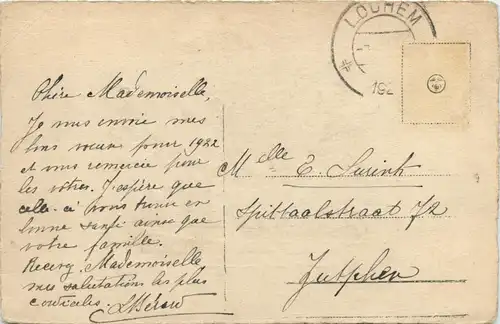 LOCHEM
192
Chère Mademoiselle,
Je vous envoie mes
bons vœux pour 1922
et vous remercie pour
les vôtres. J'espère que
celle-ci vous trouve en
bonne santé ainsi que
votre famille.
Recevez, Mademoiselle
mes salutations les plus
cordiales.
Mlle E. Surink
Spittaalstraat 72
Zutphen